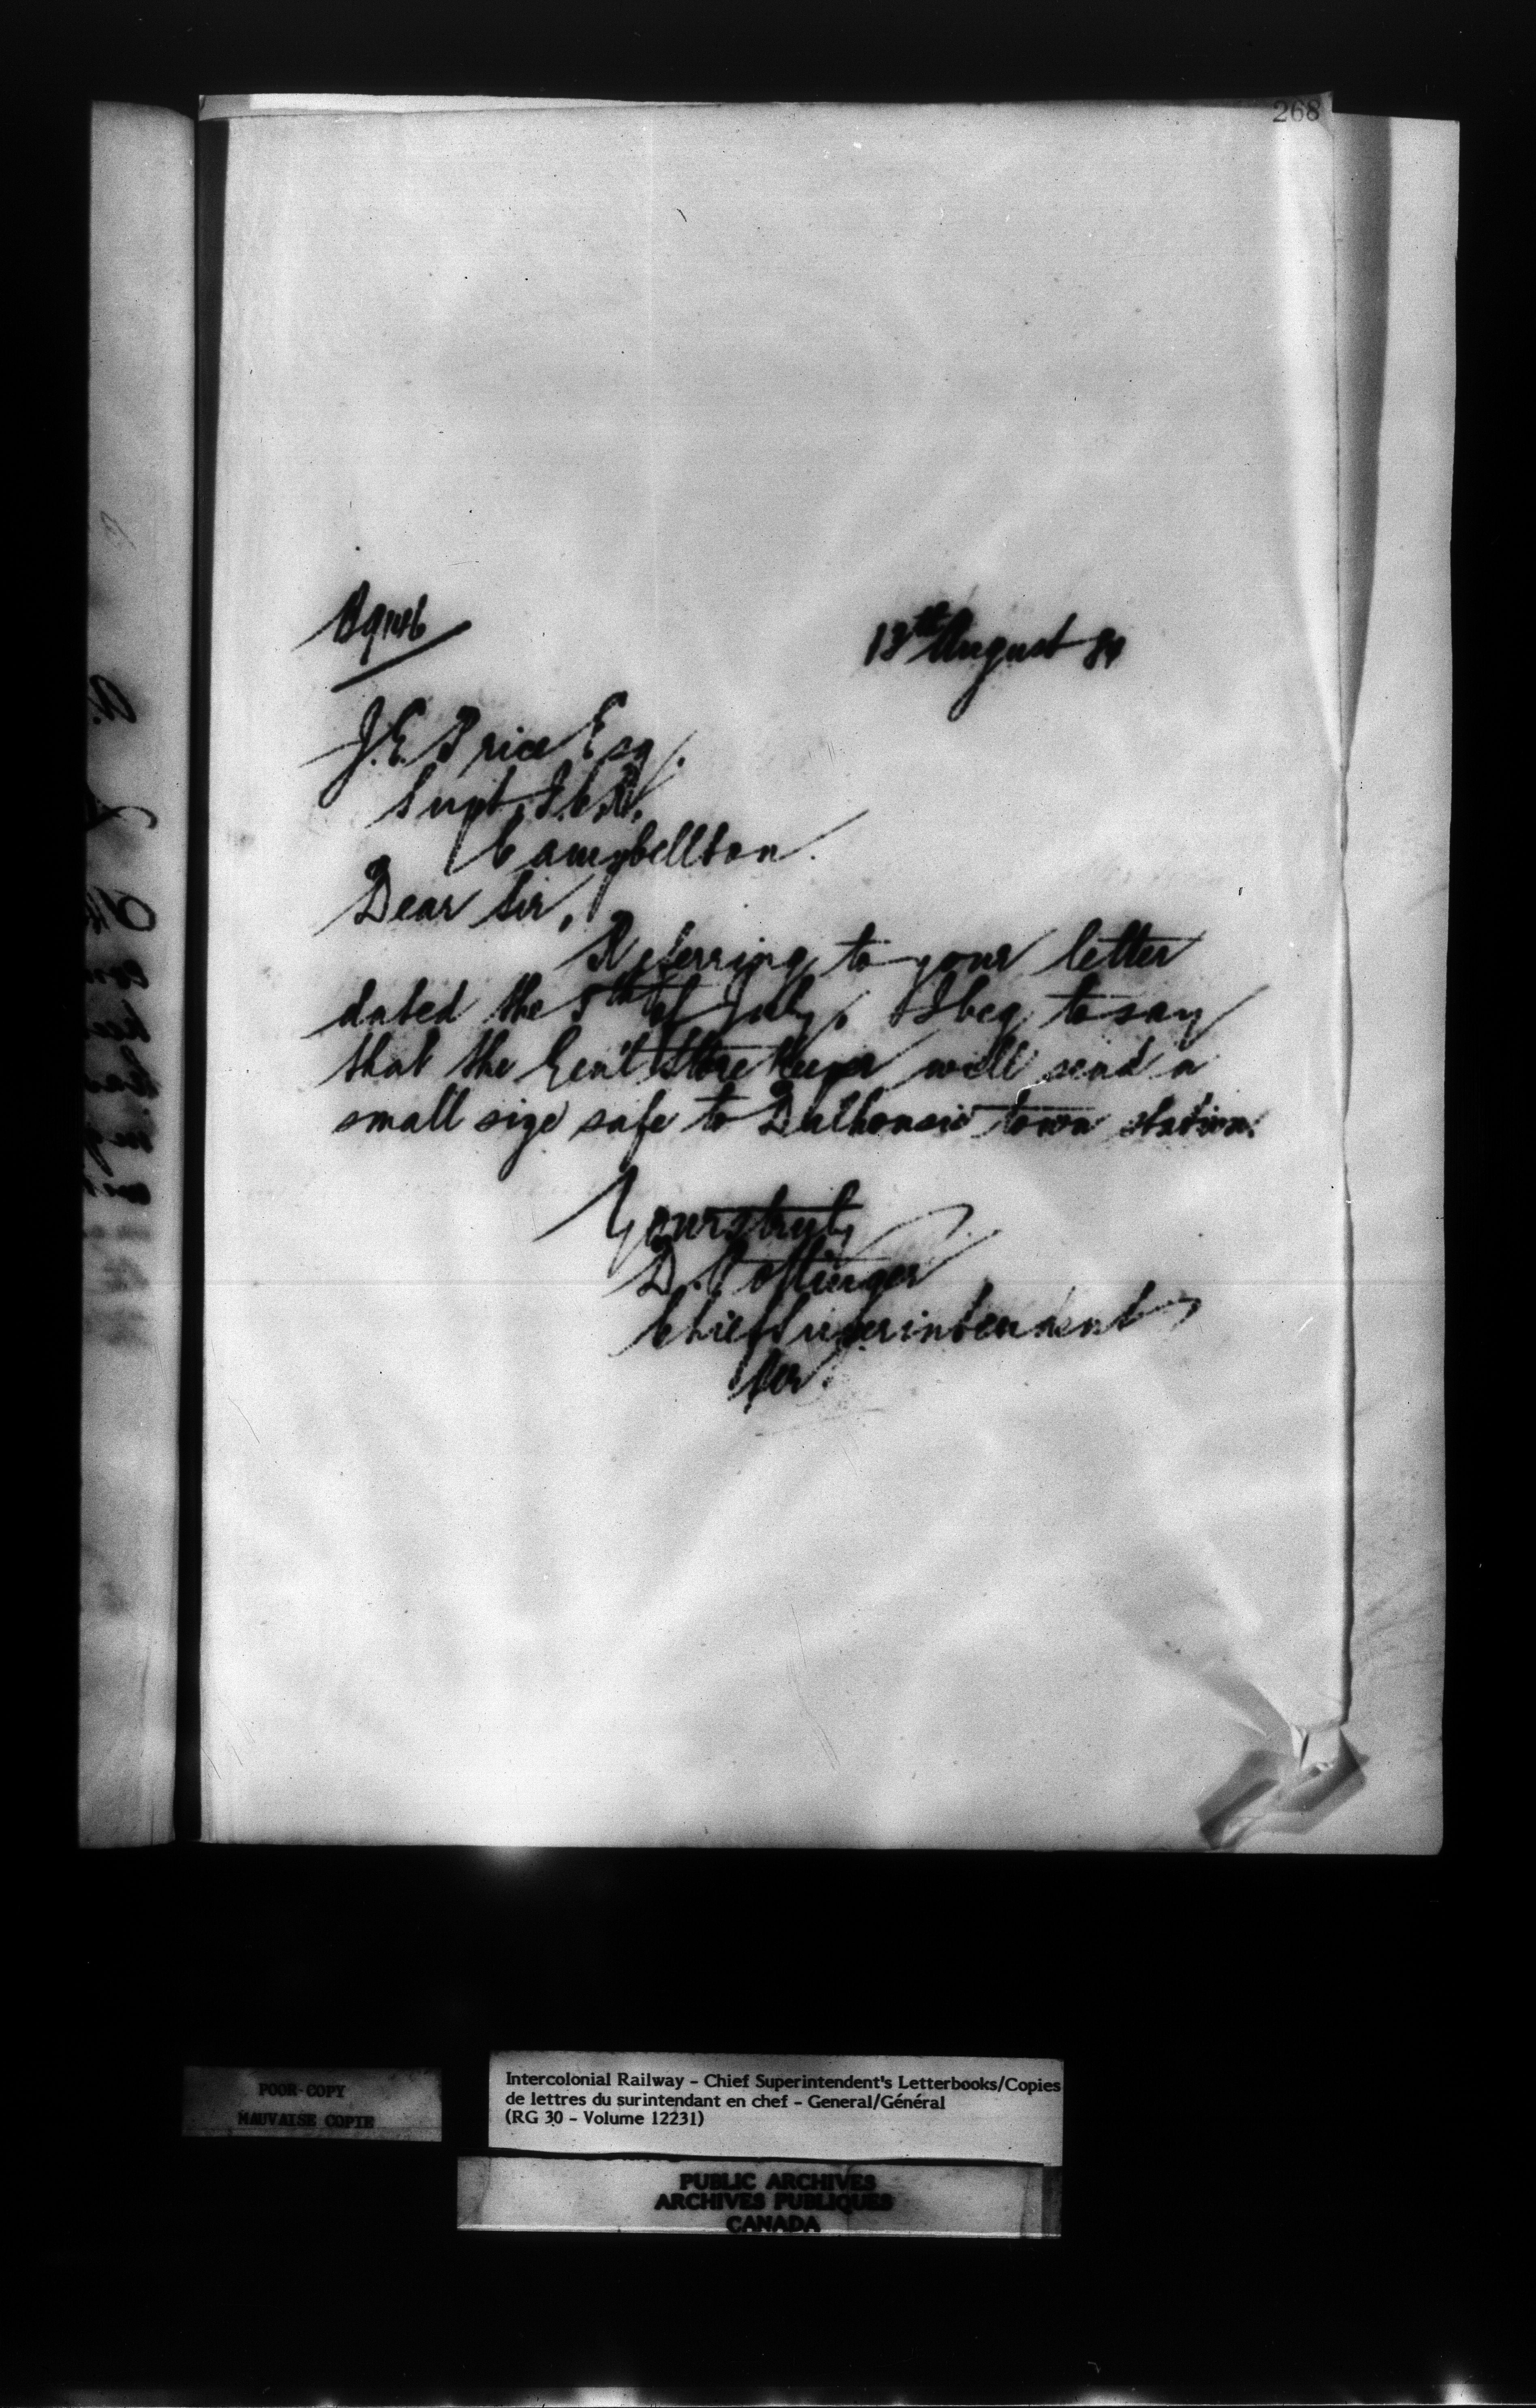 268
13th August 84
J.E. Price Esq.
Supt. I.C.R.
Campbellton.
Dear Sir,
Referring to your letter
dated the 5th of July, I beg to say
that the Gen'l Store Keeper will send a
small size safe to Dalhousie town station.
Yours truly
D. Pottinger
Chief Superintendent
Per.
POOR COPY
MAUVAISE COPIE
Intercolonial Railway - Chief Superintendent's Letterbooks/Copies
de lettres du surintendant en chef - General/Général
(RG 30 - Volume 12231)
PUBLIC ARCHIVES
ARCHIVES PUBLIQUES
CANADA